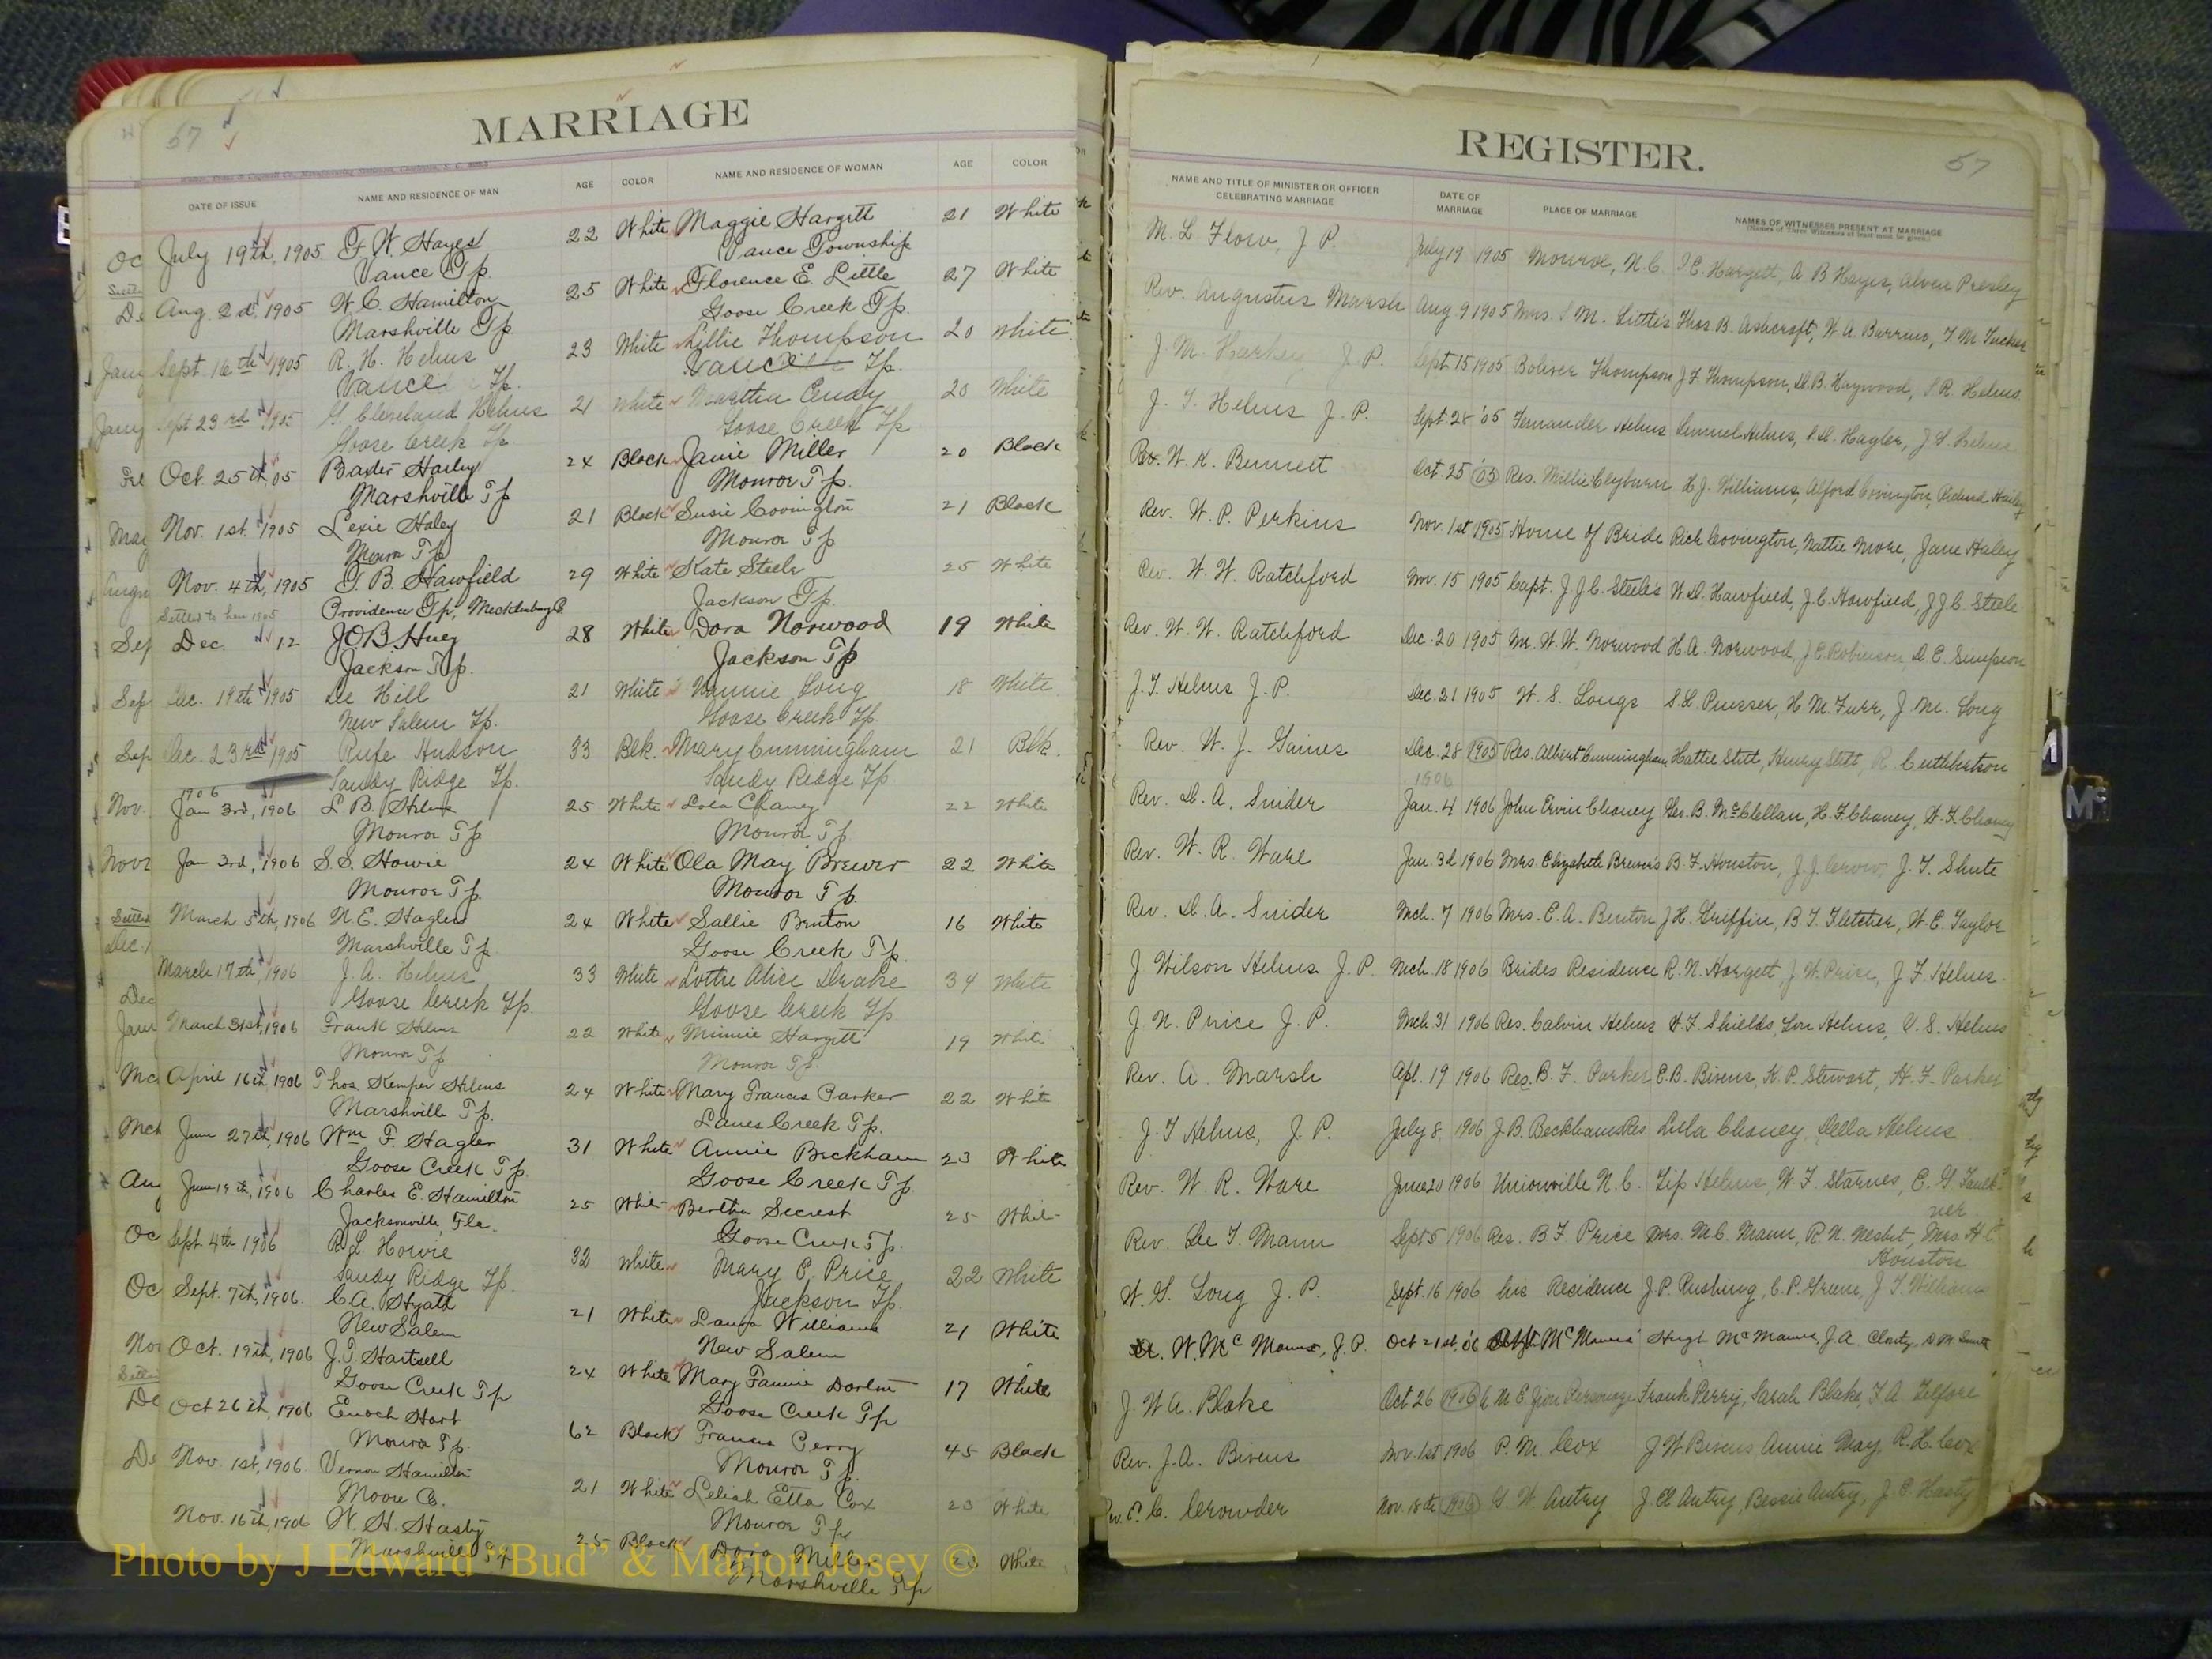 57
MARRIAGE
DATE OF ISSUE NAME AND RESIDENCE OF MAN AGE COLOR NAME AND RESIDENCE OF WOMAN AGE COLOR
July 19th, 1905 F. W. Hayes 22 White Maggie Hargett 21 White
Vance Tp. Vance Township
Aug. 2d, 1905 W. C. Hamilton 25 White Florence E. Little 27 White
Marshville Tp. Goose Creek Tp.
Sept. 16th 1905 R. H. Helms 23 White Lillie Thompson 20 White
Vance Tp. Vance Tp.
Sept 23rd 1905 G Cleveland Helms 21 White 20 White
Goose Creek Tp Goose Creek Tp
Oct. 25th, 05 Baxter Hailey 24 Black Janie Miller 20 Black
Marshville Tp Monroe Tp.
Nov. 1st. 1905 Lexie Haley 21 Black Susie Covington 21 Black
Monroe Tp Monroe Tp
Nov. 4th, 1905 T. B. Hawfield 29 White Kate Steele 25 White
Providence Tp, Mecklenburg Co. Jackson Tp.
Settled to here 1905
Dec. 12 J.O.B. Huey 28 White Dora Norwood 19 White
Jackson Tp. Jackson Tp
Dec. 19th 1905 Lee Hill 21 White Nannie Long 18 White
New Salem Tp. Goose Creek Tp.
Dec. 23rd 1905 Rufe Hudson 33 Blk. Mary Cunningham 21 Blk.
Sandy Ridge Tp. Sandy Ridge Tp
1906
Jan 3rd, 1906 L. B. Helms 25 White Lola Chaney 22 White
Monroe Tp Monroe Tp
Jan 3rd, 1906 S. S. Howie 24 White Ola May Brewer 22 White
Monroe Tp Monroe Tp.
March 5th, 1906 N. E. Hagler 24 White Sallie Benton 16 White
Marshville Tp Goose Creek Tp.
March 17th, 1906 J. A. Helms 33 White Lottie Alice Drake 34 White
Goose Creek Tp. Goose Creek Tp.
March 31st, 1906 Frank Helms 22 White Minnie Hargett 19 White
Monroe Tp Monroe Tp.
April 16th, 1906 Thos. Kemper Helms 24 White Mary Frances Parker 22 White
Marshville Tp. Lanes Creek Tp.
June 27th, 1906 Wm F. Hagler 31 White Annie Beckham 23 White
Goose Creek Tp. Goose Creek Tp.
June 19th, 1906 Charles E. Hamilton 25 White Bertha Secrest 25 White
Jacksonville, Fla. Goose Creek Tp.
Sept 4th 1906 R. L. Howie 32 White Mary C. Price 22 White
Sandy Ridge Tp. Jackson Tp.
Sept. 7th, 1906. C. A. Hyatt 21 White Laura Williams 21 White
New Salem New Salem
Oct. 19th, 1906 J. T. Hartsell 24 White Mary Fannie 17 White
Goose Creek Tp Goose Creek Tp
Oct 26th, 1906 Enoch Hart 62 Black Frances Perry 45 Black
Monroe Tp. Monroe Tp.
Nov. 1st, 1906. Vernon Hamilton 21 White Leliah Etta Cox 23 White
Moore Co. Monroe Tp
Nov. 16th, 1906 W. H. Hasty 25 Black Dora Miller 23 White
Marshville Tp Marshville Tp
REGISTER.
57
NAME AND TITLE OF MINISTER OR OFFICER CELEBRATING MARRIAGE DATE OF MARRIAGE PLACE OF MARRIAGE NAMES OF WITNESSES PRESENT AT MARRIAGE
(Names of Three Witnesses at least must be given.)
M. L Flow, J P. July 19 1905 Monroe, N. C. Hargett, A B Hayes, Presley
Rev. Augustus Marsh Aug 9 1905 Mrs. S. M. Little's Thos. B. Ashcroft, W A. Barrino, T M Tucker
J. M. Harkey J. P. Sept. 15 1905 Boliver Thompson J F. Thompson, D. B. Haywood, S. R. Helms
J. T. Helms J. P. Sept. 28 '05 Fernander Helms Lemuel Helms, Hagler, J. S. Helms
Rev. W. K. Bennett Oct 25 '05 Res. Millie Clyburn H J. Williams, Alford Covington, Richard Hailey
Rev. W. P. Perkins Nov. 1st 1905 Home of Bride Rich Covington, Mattie More, Jane Haley
Rev. W. W. Ratchford Nov. 15 1905 Capt. J. J. C. Steele's W. D. Hawfield, J. C. Hawfield, J J C. Steele
Rev. W. W. Ratchford Dec. 20 1905 Mr. W. W. Norwood H. A. Norwood, J C. Robinson D E. Simpson
J. T. Helms J. P. Dec. 21 1905 W. S. Longs S. L. Presser, H M. Furr, J. M. Long
Rev. W. J. Gaines Dec. 28 1905 Res. Albert Cunningham Hattie Stitt, Henry Stitt, R. Cuthbertson
1906
Rev. D. A. Snider Jan. 4 1906 John Ervin Chaney Geo. B. McClellan, H. F. Chaney, W. F. Chaney
Rev. W. R. Ware Jan. 3d 1906 Mrs. Elizabeth Brewer's B. F. Houston, J. J. Crow, J. T. Shute
Rev. D. A. Snider Mch. 7 1906 Mrs. E. A. Benton J H. Griffin, B T. Fletcher, W. E. Taylor
J Wilson Helms J. P. Mch. 18 1906 Brides Residence R. N. Hargett, J W. Price, J F. Helms.
J. N. Price J. P. Mch. 31 1906 Res. Calvin Helms W. F. Shields, Lon Helms, V. S. Helms
Rev. A. Marsh Apl. 19 1906 Res. B. F. Parker E. B. Bivens, K. P. Stewart, H. F. Parker
J. T Helms, J. P. July 8, 1906 J. B. Beckhams Res Lula Chaney, Della Helms
Rev. W. R. Ware June 20 1906 Unionville N. C. Zip Helms, W. F. Starnes, E. G. Faulk-
ner
Rev. Lee T. Mann Sept 5 1906 Res. B F. Price Mrs. M. C. Mann, R. N. Nesbit, Mrs. H. C
Houston
W. S. Long J. P. Sept. 16 1906 his Residence J. P. Rushing, C. P. Greene, J. T. Williams
W. McManus, J. P. Oct 21st, '06 McManus' Hugh McManus, J. A.
J. W A. Blake Oct 26 1906 A M E Zion Parsonage Frank Perry, Sarah Blake, F A. Telfare
Rev. J. A. Bivens Nov. 1st 1906 P. M. Cox J W Bivens Annie May, R. H. Cox
Rev. E. C. Crowder Nov. 18th 1906 G. W. Autry J. A Autry, Bessie Autry, J. C. Hasty
Photo by J Edward “Bud” & Marion Josey ©